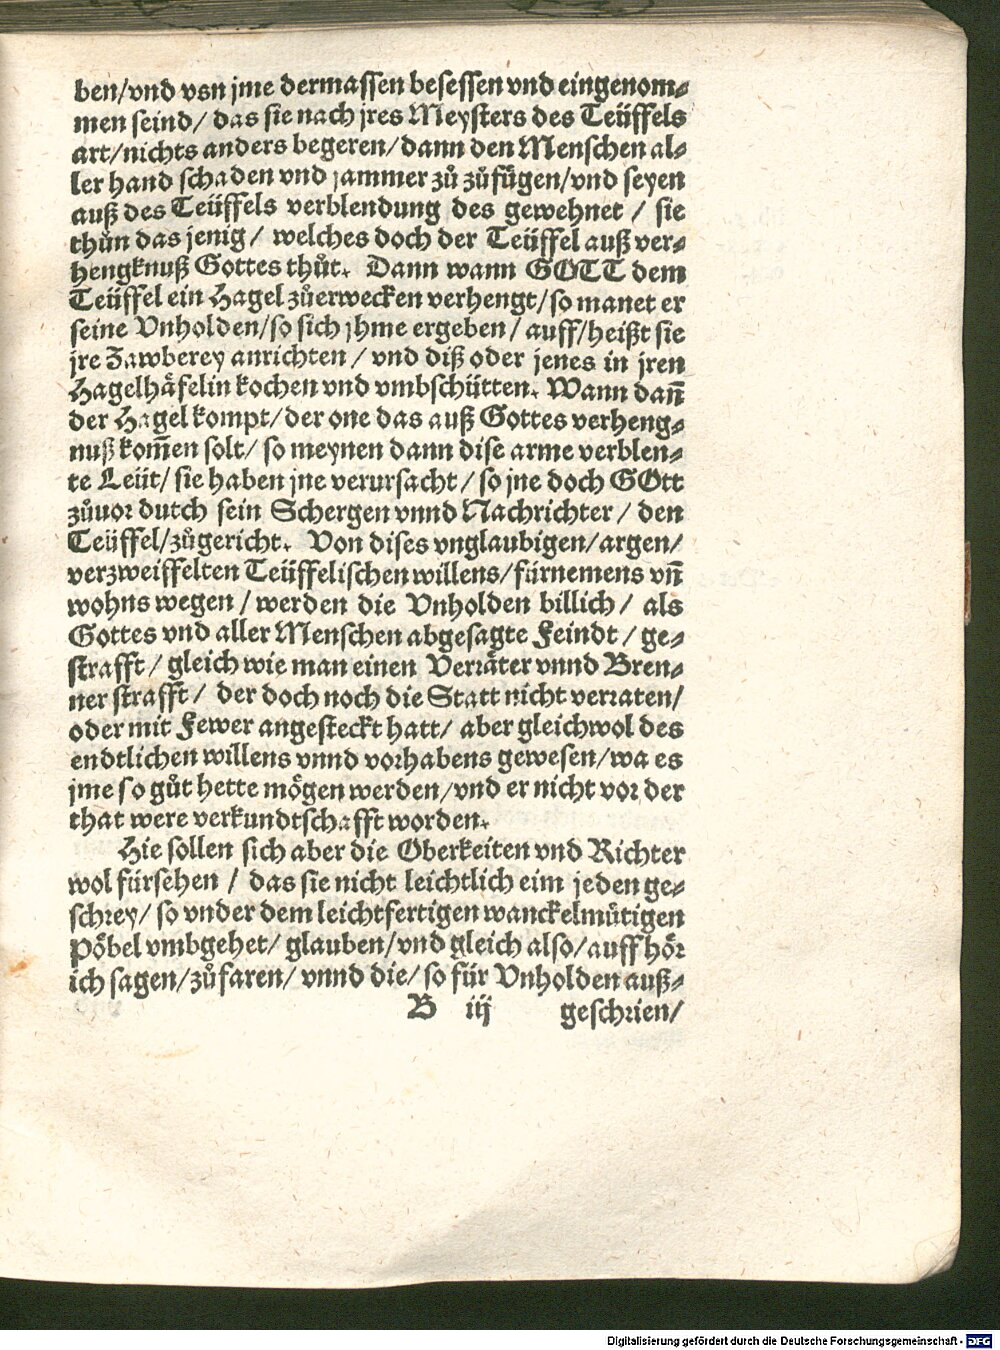 ben/vnd von jme dermassen besessen vnd eingenom⸗
men seind/ das sie nach jres Meysters des Teüffels
art/nichts anders begeren/dann den Menschen al⸗
ler hand schaden vnd jammer zů zůfügen/vnd seyen
auß des Teüffels verblendung des gewehnet / sie
thůn das jenig/ welches doch der Teüffel auß ver⸗
hengknuß Gottes thůt. Dann wann GOTT dem
Teüffel ein Hagel zůerwecken verhengt/so manet er
seine Vnholden/so sich jhme ergeben/ auff/heißt sie
jre Zawberey anrichten / vnd diß oder jenes in jren
Hagelhäfelin kochen vnd vmbschütten. Wann dañ
der Hagel kompt/der one das auß Gottes verheng⸗
nuß kom̃en solt/ so meynen dann dise arme verblen⸗
te Leüt/ sie haben jne verursacht / so jne doch GOtt
zůuor dutch sein Schergen vnnd Nachrichter / den
Teüffel/zůgericht. Von dises vnglaubigen/argen/
verzweiffelten Teüffelischen willens/fürnemens vñ
wohns wegen / werden die Vnholden billich/ als
Gottes vnd aller Menschen abgesagte Feindt / ge⸗
strafft/ gleich wie man einen Verräter vnnd Bren⸗
ner strafft/ der doch noch die Statt nicht verraten/
oder mit Fewer angesteckt hatt/ aber gleichwol des
endtlichen willens vnnd vorhabens gewesen/wa es
jme so gůt hette mögen werden/vnd er nicht vor der
that were verkundtschafft worden.
Hie sollen sich aber die Oberkeiten vnd Richter
wol fürsehen / das sie nicht leichtlich eim jeden ge⸗
schrey/ so vnder dem leichtfertigen wanckelmütigen
Pöbel vmbgehet/ glauben/vnd gleich also/auff hör
ich sagen/zůfaren/ vnnd die/so für Vnholden auß⸗
B iij geschrien/
Digitalisierung gefördert durch die Deutsche Forschungsgemeinschaft - DFG